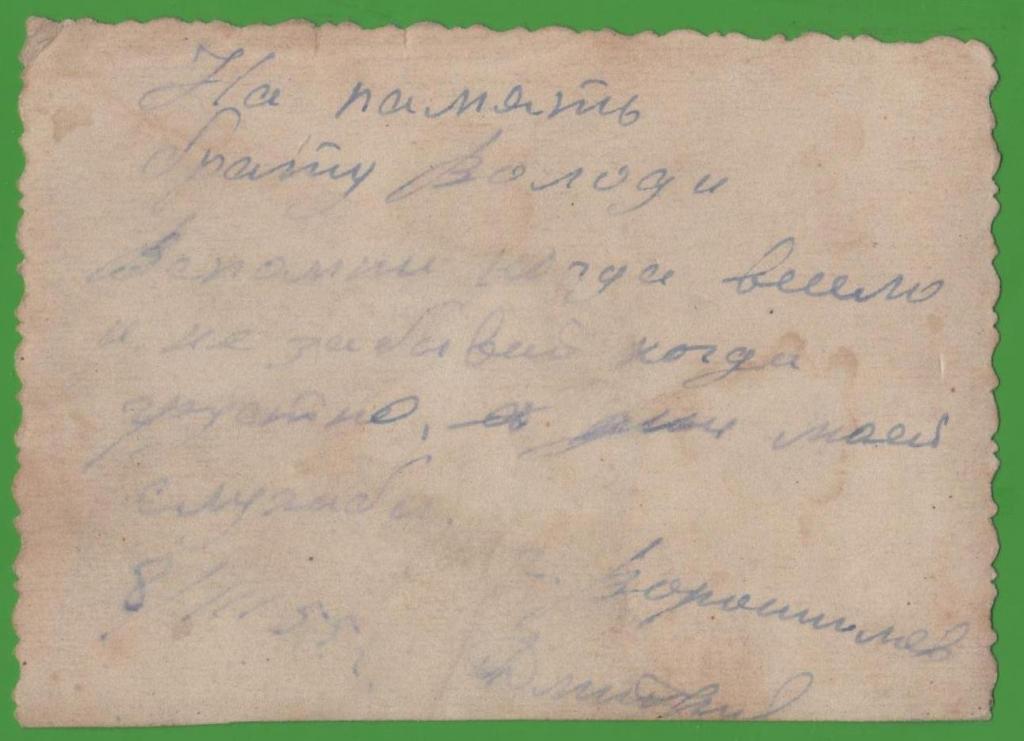 На память
брату Володи
Вспомни когда весело
и не забывай когда
грустно, а дни моей
службы.
г. Ворошилов
8 VIII 55г.